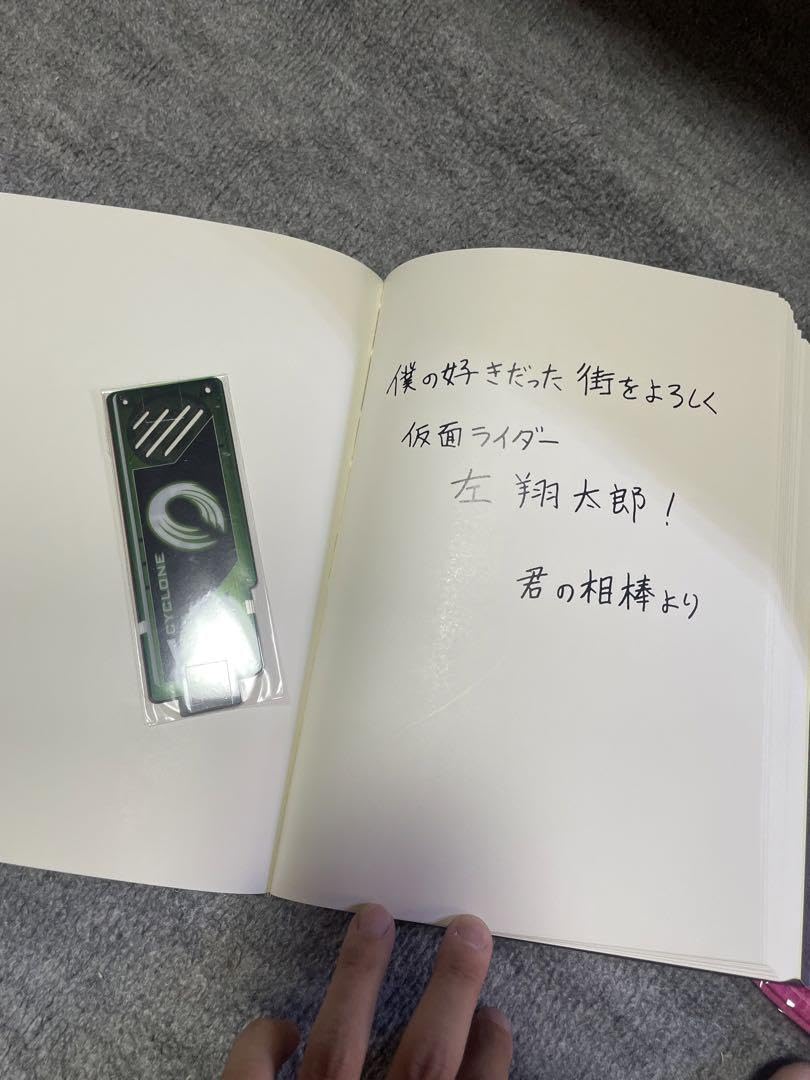 CYCLONE
僕の好きだった街をよろしく
仮面ライダー
左 翔太郎!
君の相棒より